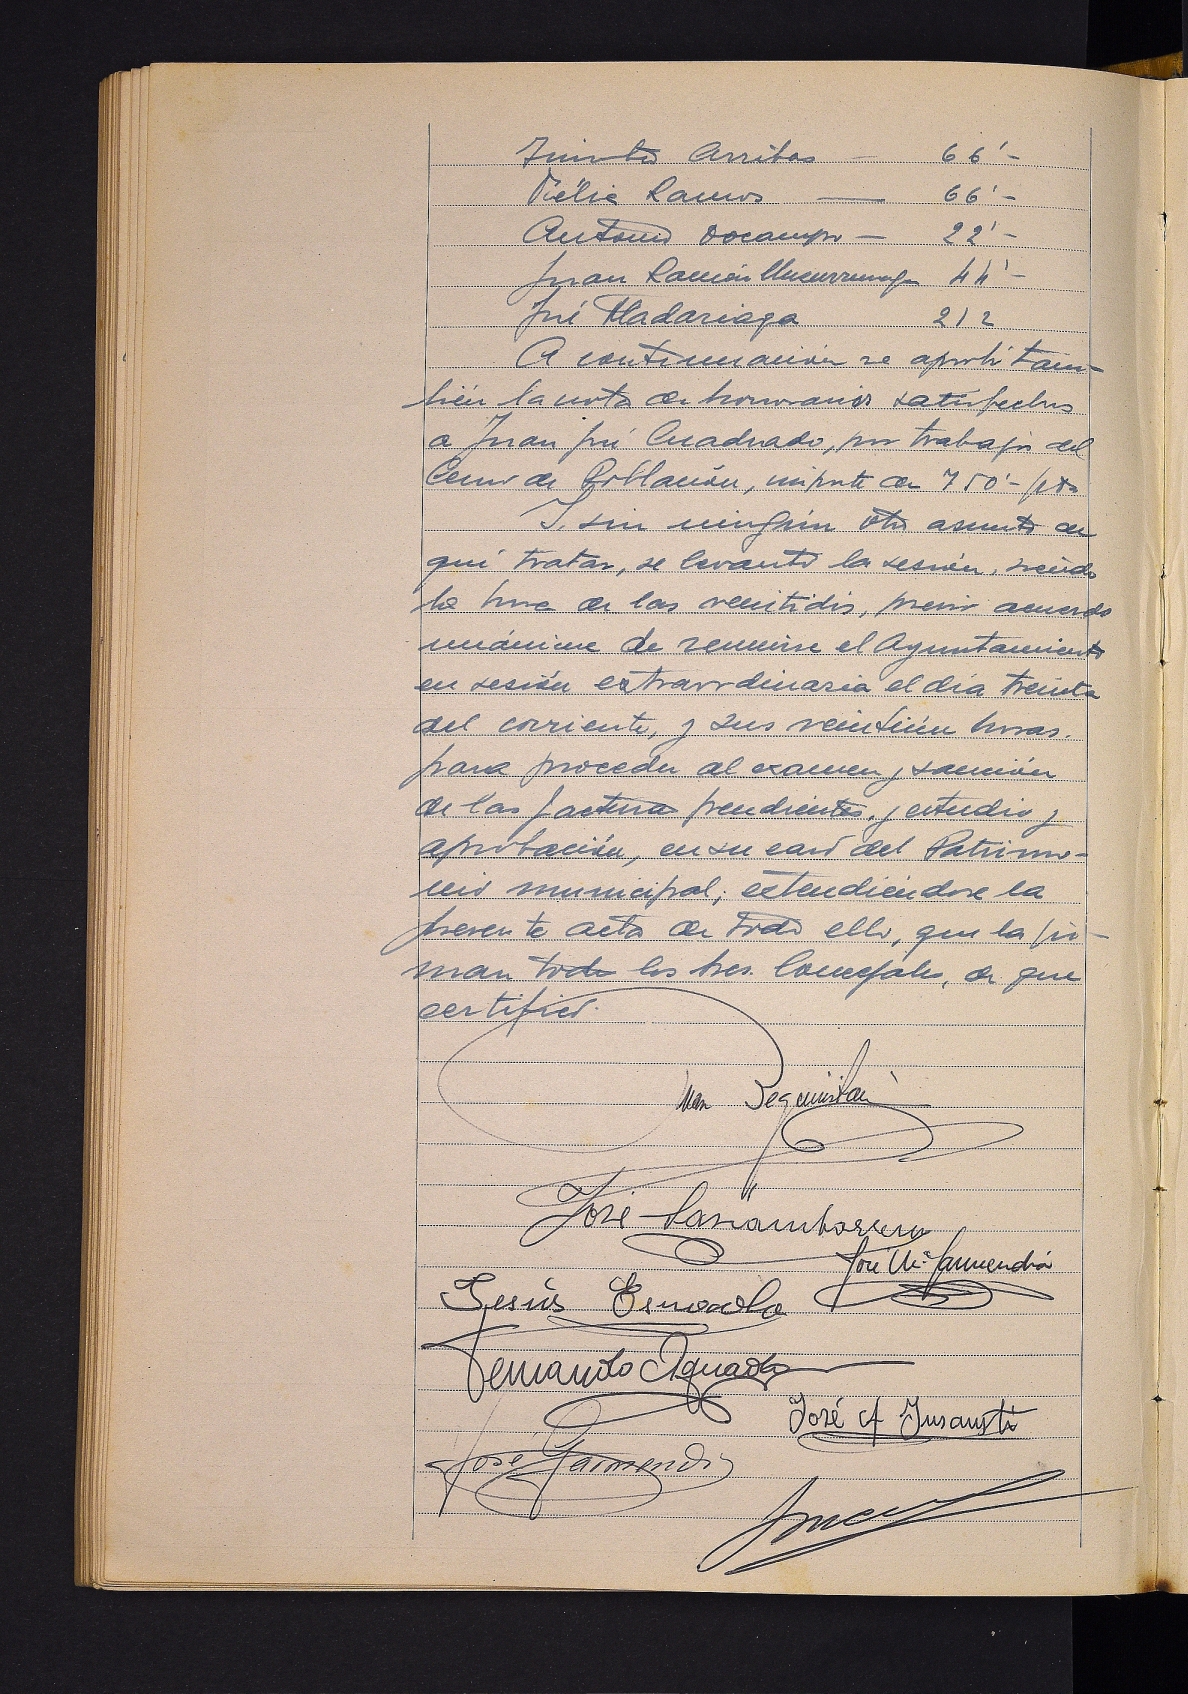 Arribas — 66'-
Ramos — 66'-
Antonio Docampo — 22'-
Juan Ramón 44'-
José Madariaga 212
A continuación se aprobó tam-
bién la nota de honorarios satisfechos
a Juan José Cuadrado, por trabajos del
Censo de Población, importe de 750'- ptas
Y sin ningún otro asunto de
qué tratar, se levantó la sesión, siendo
la hora de las veintidós, previo acuerdo
unánime de reunirse el Ayuntamiento
en sesión extraordinaria el día treinta
del corriente, y sus veintiún horas.
para proceder al examen y sanción
de las facturas pendientes, y estudio y
aprobación, en su caso del Patrimo-
nio municipal; extendiéndose la
presente acta de todo ello, que la fir-
man todos los sres. Concejales, de que
certifico.
Juan Beguiristain
José
José Mª Garmendia
Jesús Esnaola
Fernando Aguado
José A Insausti
José Garmendia